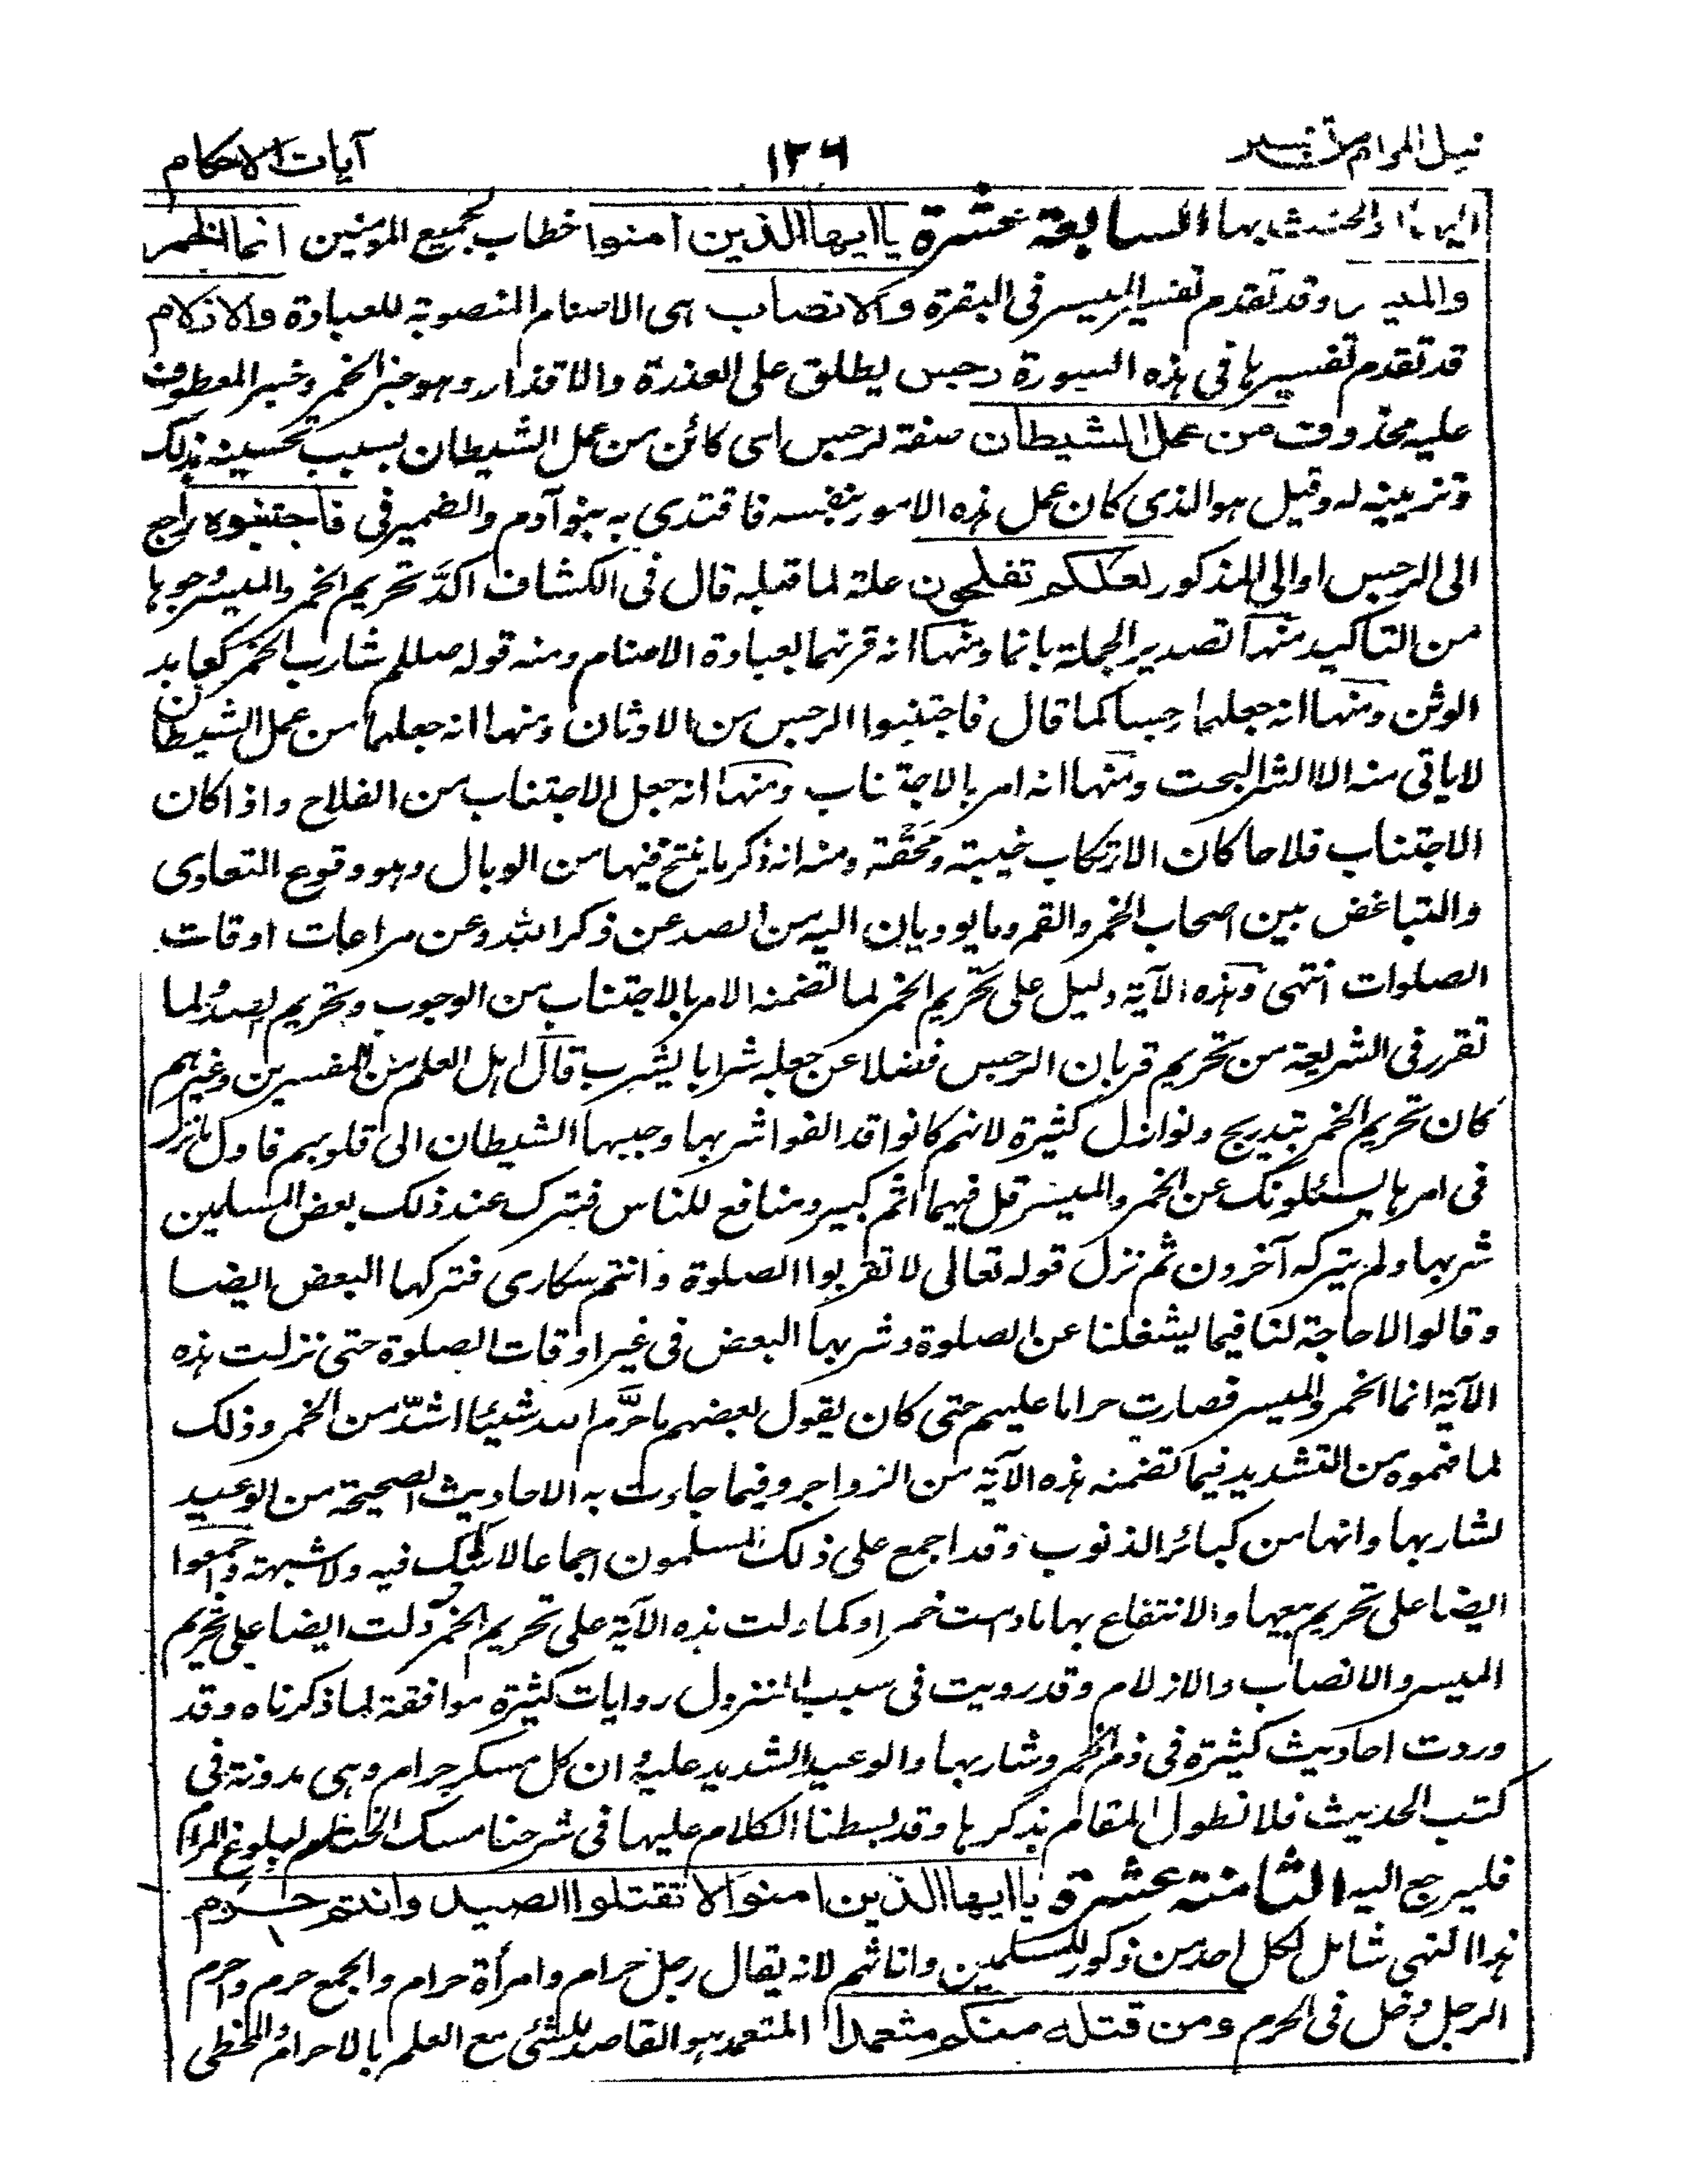 نيل المرام من تفسير ١٢٦ آيات الاحكام
والحنث بها السابعة عشرة يا ايها الذين امنوا خطاب لجميع المؤمنين انما الخمر
والميسر وقد تقدم تفسير الميسر فى البقرة والانصاب هى الاصنام المنصوبة للعبادة والازلام
قد تقدم تفسيرها فى هذه السورة رجس يطلق على العذرة والاقذار وهو خبر الخمر وخبر المعطوف
عليه محذوف من عمل الشيطان صفة لرجس اى كائن من عمل الشيطان بسبب تحسينه بذلك
وتزيينه له وقيل هو الذى كان عمل هذه الامور بنفسه فاقتدى به بنو آدم والضمير فى فاجتنبوه راجع
الى الرجس او الى المذكور لعلكم تفلحون علة لما قبله قال فى الكشاف اكدّ تحريم الخمر والميسر وجوها
من التاكيد منها تصدير الجملة بانما ومنها انه قرنهما بعبادة الاصنام ومنه قوله صللم شارب الخمر كعابد
الوثن ومنها انه جعلهما رجسا كما قال فاجتنبوا الرجس من الاوثان ومنها انه جعلهما من عمل الشيطان
لا ياتى منه الا الشر البحت ومنها انه امر بالاجتناب ومنها انه جعل الاجتناب من الفلاح واذا كان
الاجتناب فلاحا كان الارتكاب خيبة ومحقة ومنه انه ذكر ما ينتج فيها من الوبال وهو وقوع التعادى
والتباغض بين اصحاب الخمر والقمر وما يوديان اليه من الصد عن ذكر الله وعن مراعات اوقات
الصلوات انتهى وهذه الآية دليل على تحريم الخمر لما تضمنه الامر بالاجتناب من الوجوب وتحريم الصد ولما
تقرر فى الشريعة من تحريم قربان الرجس فضلا عن جعله شرابا يشرب قال اهل العلم من المفسرين وغيرهم
كان تحريم الخمر بتدريج ونوازل كثيرة لانهم كانوا قد الفوا شربها وحببها الشيطان الى قلوبهم فاول ما نزل
فى امرها يسئلونك عن الخمر والميسر قل فيهما اثم كبير ومنافع للناس فترك عند ذلك بعض المسلمين
شربها ولم يتركه آخرون ثم نزل قوله تعالى لا تقربوا الصلوة وانتم سكارى فتركها البعض ايضا
وقالوا لا حاجة لنا فيما يشغلنا عن الصلوة وشربها البعض فى غير اوقات الصلوة حتى نزلت هذه
الآية انما الخمر والميسر فصارت حراما عليهم حتى كان يقول بعضهم ما حرَّم الله شيئا اشدّ من الخمر وذلك
لما فهموه من التشديد فيما تضمنه هذه الآية من الزواجر وفيما جاءت به الاحاديث الصحيحة من الوعيد
لشاربها وانها من كبائر الذنوب وقد اجمع على ذلك المسلمون اجماعا لا شك فيه ولا شبهة واجمعوا
ايضا على تحريم بيعها والانتفاع بها ما دامت خمرا وكما دلت هذه الآية على تحريم الخمر دلت ايضا على تحريم
الميسر والانصاب والازلام وقد رويت فى سبب النزول روايات كثيرة موافقة لما ذكرناه وقد
وردت احاديث كثيرة فى ذم الخمر وشاربها والوعيد الشديد عليه وان كل مسكر حرام وهى مدونة فى
كتب الحديث فلا نطول المقام بذكرها وقد بسطنا الكلام عليها فى شرحنا مسك الختام لبلوغ المرام
فليرجع اليه الثامنة عشرة يا ايها الذين امنوا لا تقتلوا الصيد وانتم حرم
هذا النهى شامل لكل احد من ذكور المسلمين واناثهم لانه يقال رجل حرام وامرأة حرام والجمع حرم واحرم
الرجل دخل فى الحرم ومن قتله منكم متعمدا المتعمد هو القاصد للشئ مع العلم بالاحرام والمخطى